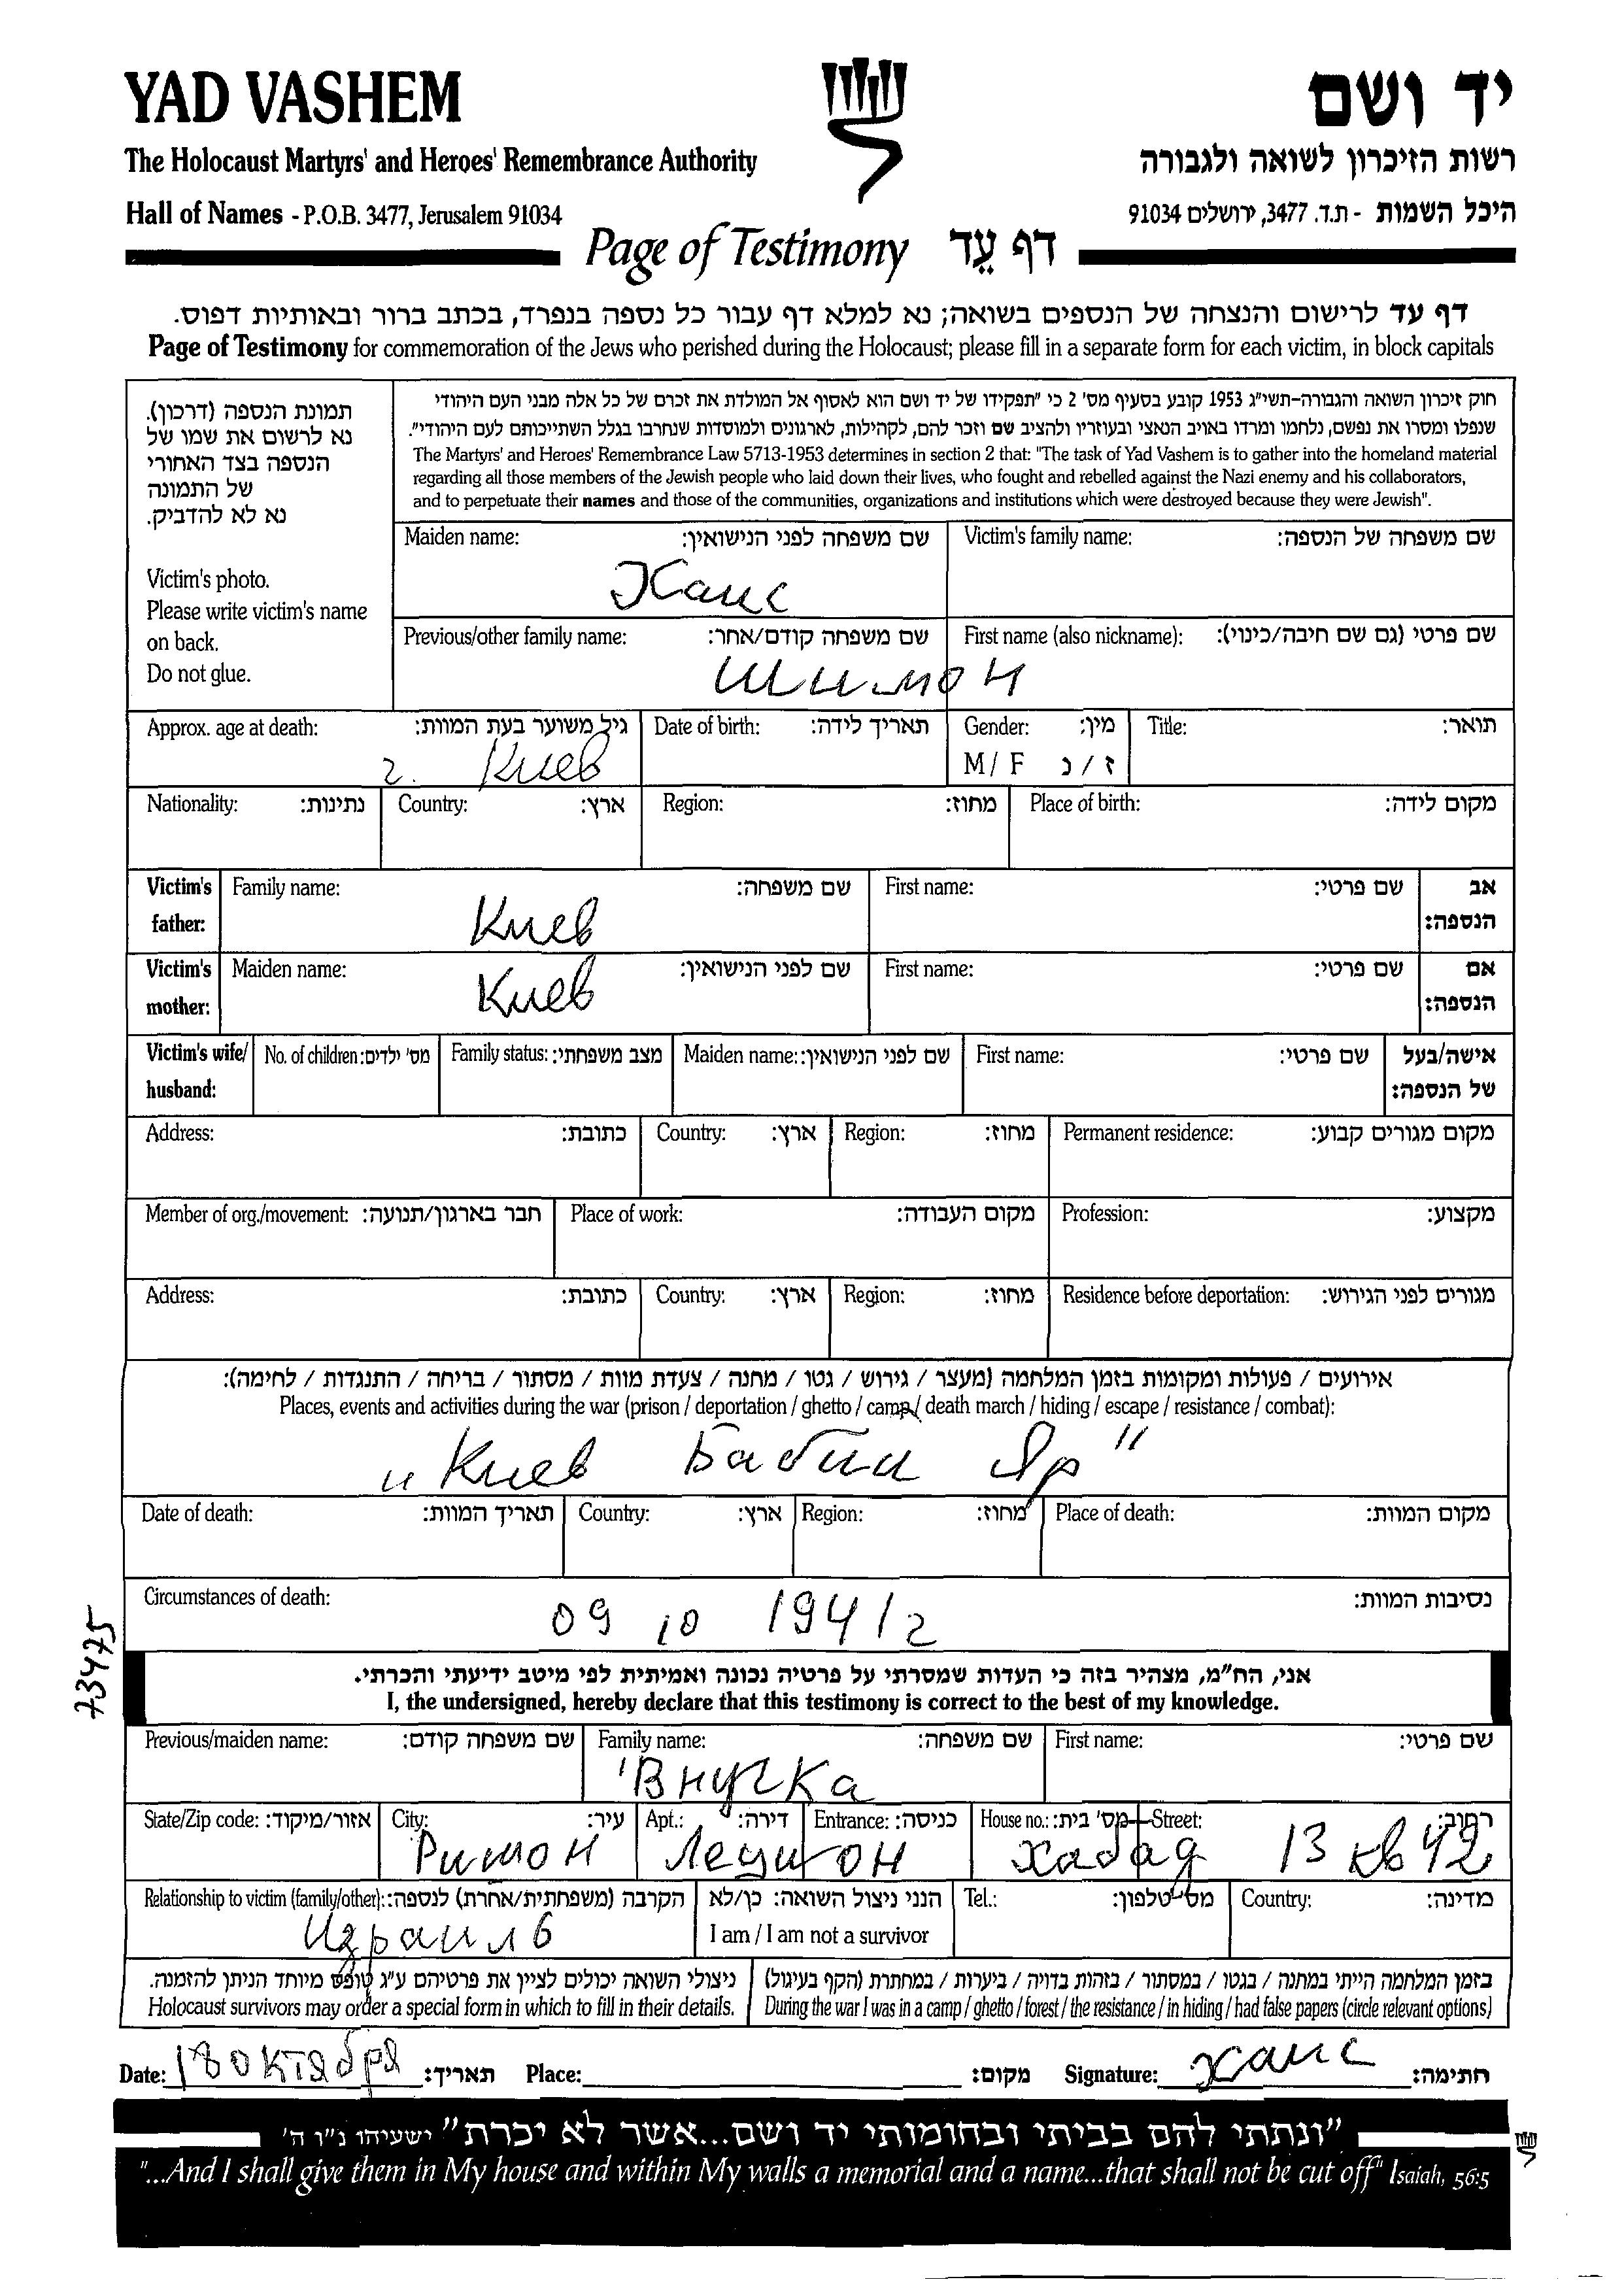 YAD VASHEM
יד ושם
The Holocaust Martyrs' and Heroes' Remembrance Authority
רשות הזיכרון לשואה ולגבורה
Hall of Names - P.O.B. 3477, Jerusalem 91034
היכל השמות - ת.ד. 3477, ירושלים 91034
Page of Testimony דף עֵד
דף עד לרישום והנצחה של הנספים בשואה; נא למלא דף עבור כל נספה בנפרד, בכתב ברור ובאותיות דפוס.
Page of Testimony for commemoration of the Jews who perished during the Holocaust; please fill in a separate form for each victim, in block capitals
תמונת הנספה (דרכון).
נא לרשום את שמו של
הנספה בצד האחורי
של התמונה
נא לא להדביק.
Victim's photo.
Please write victim's name
on back.
Do not glue.
חוק זיכרון השואה והגבורה-תשי"ג 1953 קובע בסעיף מס' 2 כי "תפקידו של יד ושם הוא לאסוף אל המולדת את זכרם של כל אלה מבני העם היהודי
שנפלו ומסרו את נפשם, נלחמו ומרדו באויב הנאצי ובעוזריו ולהציב שם וזכר להם, לקהילות, לארגונים ולמוסדות שנחרבו בגלל השתייכותם לעם היהודי".
The Martyrs' and Heroes' Remembrance Law 5713-1953 determines in section 2 that: "The task of Yad Vashem is to gather into the homeland material
regarding all those members of the Jewish people who laid down their lives, who fought and rebelled against the Nazi enemy and his collaborators,
and to perpetuate their names and those of the communities, organizations and institutions which were destroyed because they were Jewish".
Maiden name: שם משפחה לפני הנישואין: Victim's family name: שם משפחה של הנספה:
Хаис
Previous/other family name: שם משפחה קודם/אחר: First name (also nickname): שם פרטי (גם שם חיבה/כינוי):
Шимон
Approx. age at death: גיל משוער בעת המוות: Date of birth: תאריך לידה: Gender: מין: Title: תואר:
г. Киев M / F ז / נ
Nationality: נתינות: Country: ארץ: Region: מחוז: Place of birth: מקום לידה:
Victim's father: Family name: שם משפחה: First name: שם פרטי: אב הנספה:
Киев
Victim's mother: Maiden name: שם לפני הנישואין: First name: שם פרטי: אם הנספה:
Киев
Victim's wife/ husband: No. of children: מס' ילדים: Family status: מצב משפחתי: Maiden name: שם לפני הנישואין: First name: שם פרטי: אישה/בעל של הנספה:
Address: כתובת: Country: ארץ: Region: מחוז: Permanent residence: מקום מגורים קבוע:
Member of org./movement: חבר בארגון/תנועה: Place of work: מקום העבודה: Profession: מקצוע:
Address: כתובת: Country: ארץ: Region: מחוז: Residence before deportation: מגורים לפני הגירוש:
אירועים / פעולות ומקומות בזמן המלחמה (מעצר / גירוש / גטו / מחנה / צעדת מוות / מסתור / בריחה / התנגדות / לחימה):
Places, events and activities during the war (prison / deportation / ghetto / camp / death march / hiding / escape / resistance / combat):
"Киев Бабии Яр"
Date of death: תאריך המוות: Country: ארץ: Region: מחוז: Place of death: מקום המוות:
Circumstances of death: נסיבות המוות:
09 10 1941 г
73475
אני, הח"מ, מצהיר בזה כי העדות שמסרתי על פרטיה נכונה ואמיתית לפי מיטב ידיעתי והכרתי.
I, the undersigned, hereby declare that this testimony is correct to the best of my knowledge.
Previous/maiden name: שם משפחה קודם: Family name: שם משפחה: First name: שם פרטי:
Внучка
State/Zip code: אזור/מיקוד: City: עיר: Apt.: דירה: Entrance: כניסה: House no.: מס' בית: Street: רחוב:
хабад 13 кв 42
Relationship to victim (family/other): הקרבה (משפחתית/אחרת) לנספה: הנני ניצול השואה: כן/לא Tel.: מס' טלפון: Country: מדינה:
Израиль I am / I am not a survivor
ניצולי השואה יכולים לציין את פרטיהם ע"ג טופס מיוחד הניתן להזמנה.
Holocaust survivors may order a special form in which to fill in their details.
בזמן המלחמה הייתי במחנה / בגטו / במסתור / בזהות בדויה / ביערות / במחתרת (הקף בעיגול)
During the war I was in a camp / ghetto / forest / the resistance / in hiding / had false papers (circle relevant options)
Date: 18 октября תאריך: Place: מקום: Signature: хаис חתימה:
"ונתתי להם בביתי ובחומותי יד ושם...אשר לא יכרת" ישעיהו נ"ו ה'
"...And I shall give them in My house and within My walls a memorial and a name...that shall not be cut off" Isaiah, 56:5